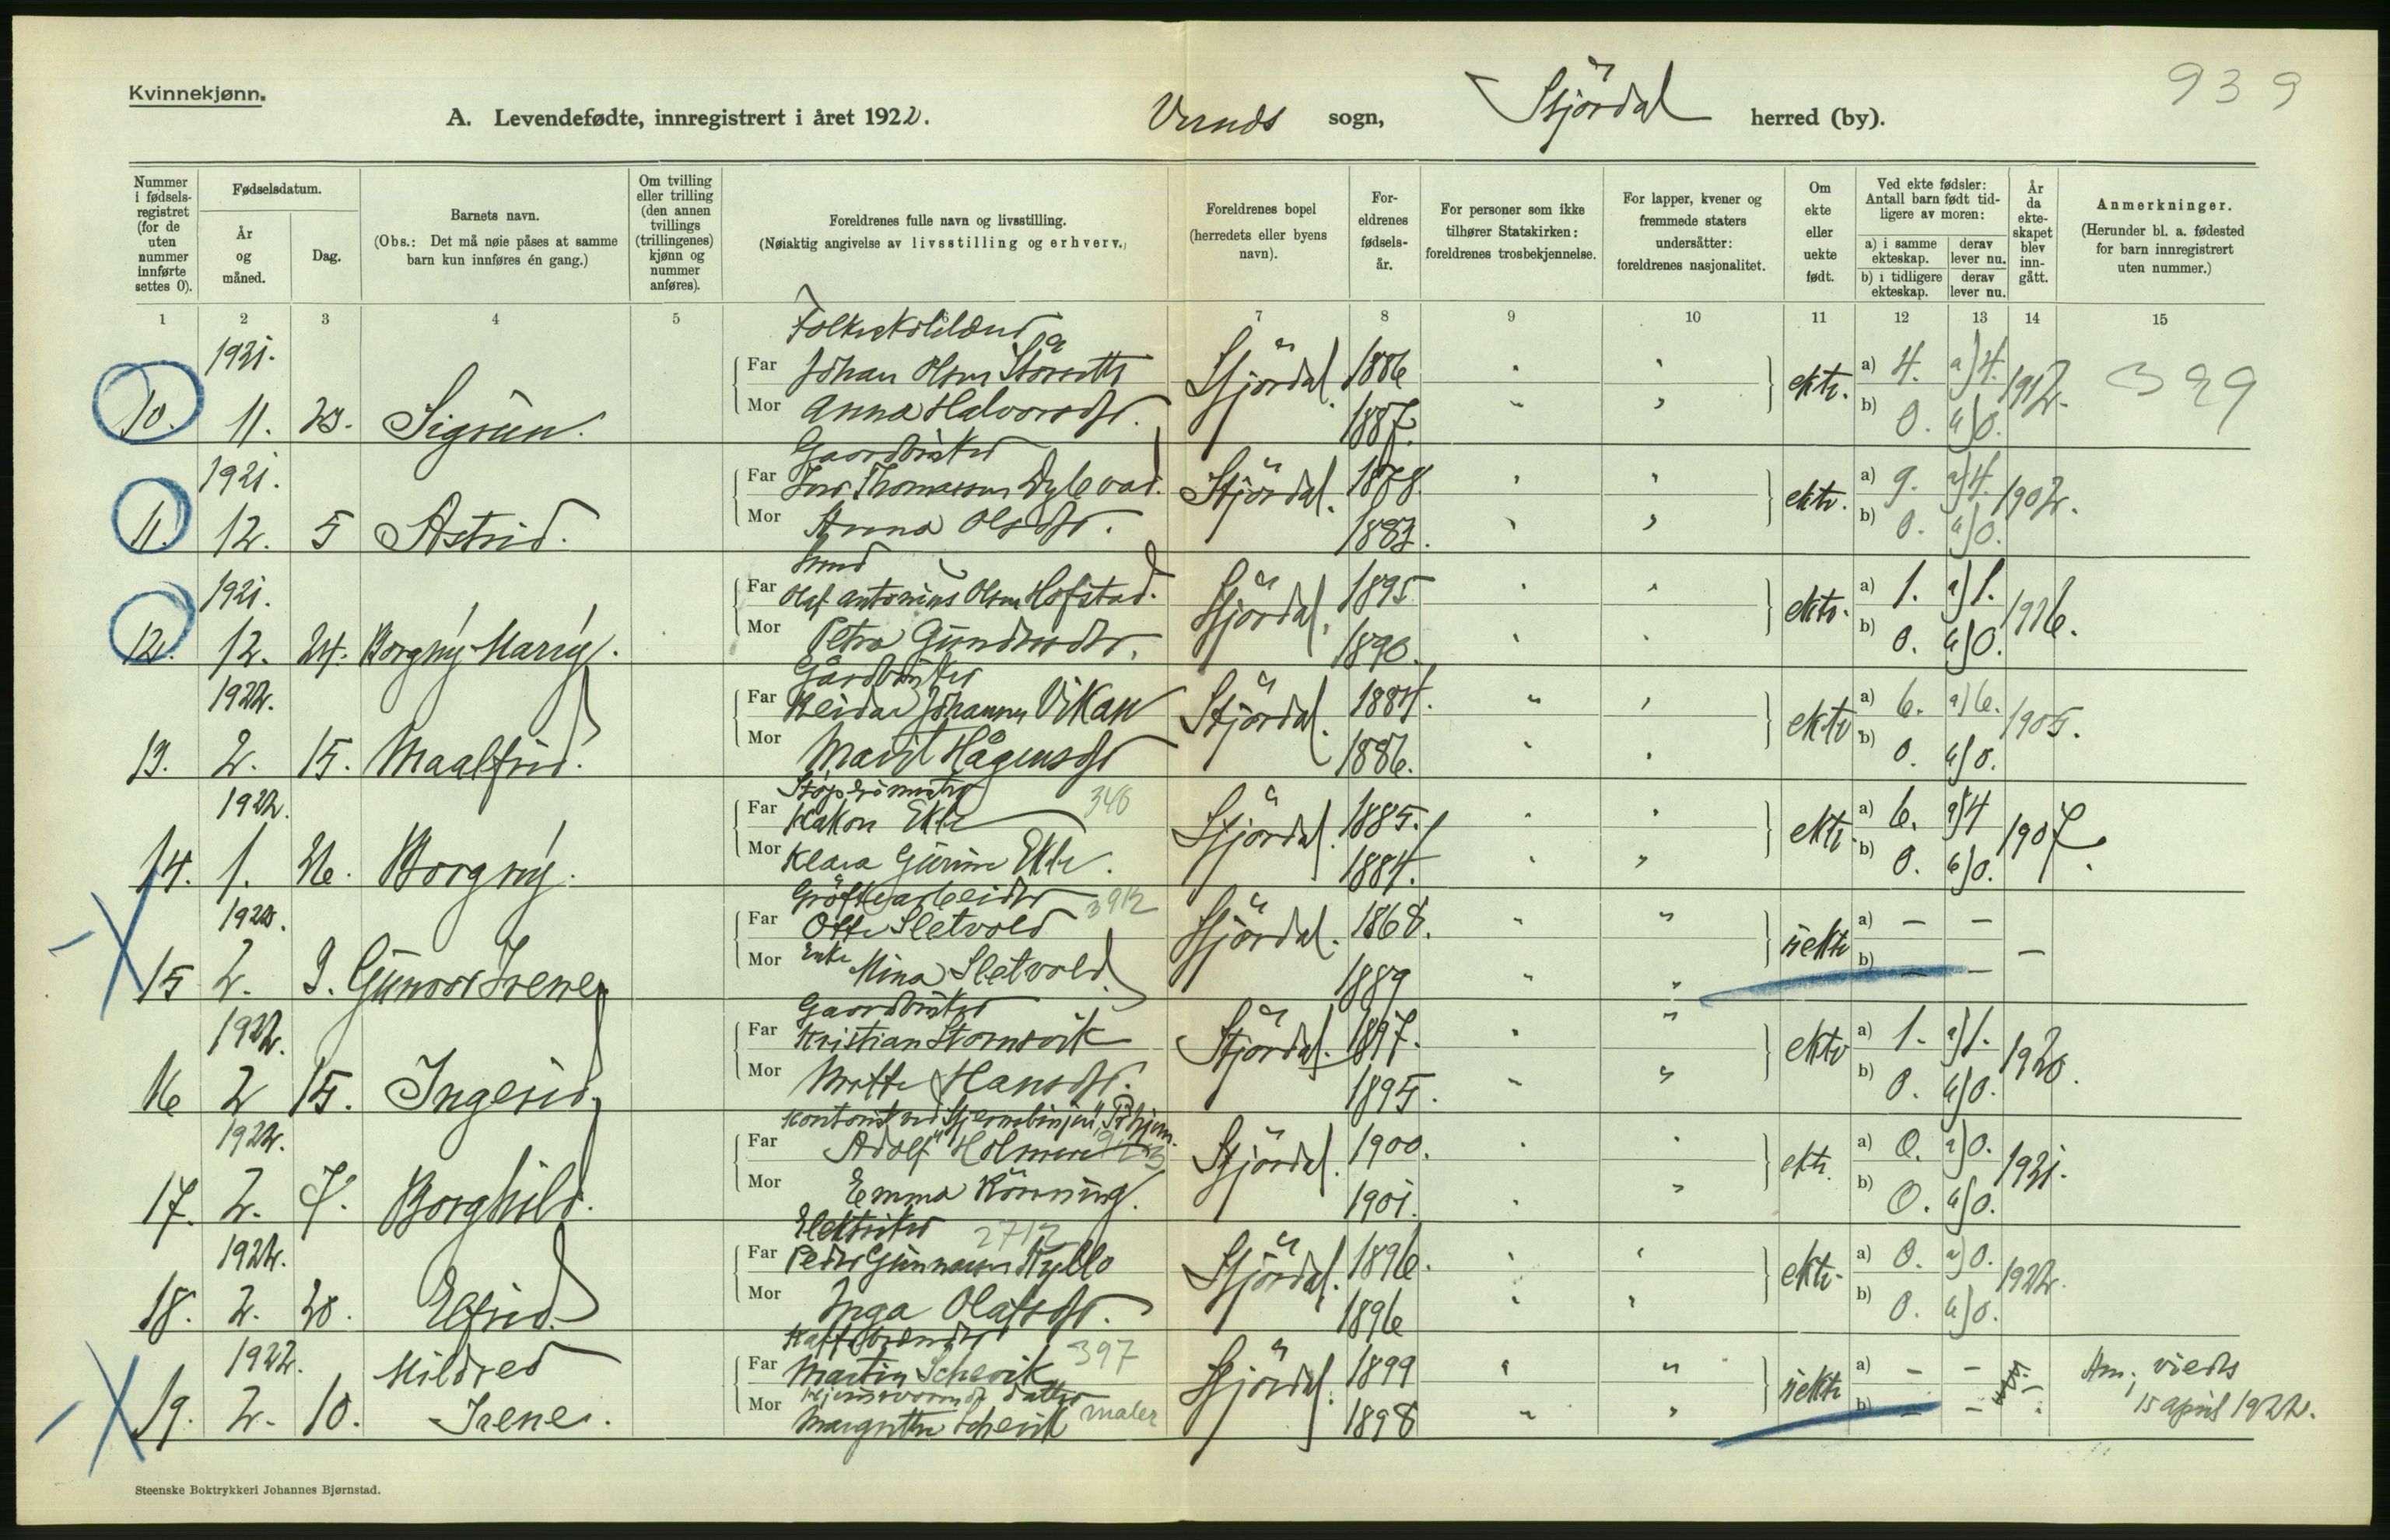 Kvinnekjønn.
939
A. Levendefødte, innregistrert i året 1922.
sogn, Stjördal herred (by).
Nummer i fødsels-registret (for de uten nummer innførte settes 0).
Fødselsdatum.
År og måned.
Dag.
Barnets navn.
(Obs.: Det må nøie påses at samme barn kun innføres én gang.)
Om tvilling eller trilling (den annen tvillings (trillingenes) kjønn og nummer anføres).
Foreldrenes fulle navn og livsstilling.
(Nøiaktig angivelse av livsstilling og erhverv.)
Foreldrenes bopel (herredets eller byens navn).
For-eldrenes fødsels-år.
For personer som ikke tilhører Statskirken: foreldrenes trosbekjennelse.
For lapper, kvener og fremmede staters undersåtter: foreldrenes nasjonalitet.
Om ekte eller uekte født.
Ved ekte fødsler: Antall barn født tid-ligere av moren:
a) i samme ekteskap.
derav lever nu.
b) i tidligere ekteskap.
derav lever nu.
År da ekte-skapet blev inn-gått.
Anmerkninger.
(Herunder bl. a. fødested for barn innregistrert uten nummer.)
1 2 3 4 5 6 7 8 9 10 11 12 13 14 15
1921.
10. 11. 23. Sigrun.
Far Johan Olsen Stjördal. 1886
Mor Anna Halvorsdtr. 1887.
ekte. a) 4. a) 4. 1912. 399
b) 0. b) 0.
1921.
11. 12. 5 Astrid.
Gaardbruker
Far Thomassen Stjördal. 1878.
Mor Anna Olsdtr.
ekte. a) 9. a) 4. 1902.
b) 0. b) 0.
1921.
12. 12. 24. Borgny Marry.
Far Olaf Antonius Olsen Hofstad. Stjördal. 1895
Mor Petra 1890.
ekte. a) 1. a) 1. 1916.
b) 0. b) 0.
1922.
13. 2. 15. Maalfrid.
Gårdbruker
Far Reidar Johannes Vikan Stjördal. 1884.
Mor Marit Hågensdtr 1886.
ekte a) 6. a) 6. 1905.
b) 0. b) 0.
1922.
14. 1. 26. Borgny.
Far Håkon Ekle 346 Stjördal. 1885.
Mor Klara Gurine Ekle. 1884.
ekte. a) 6. a) 4 1907.
b) 0. b) 0.
1922.
15 2. 9. Gunvor Irene
Gröftearbeider 3912
Far Otto Sletvold Stjördal. 1868.
Mor Enke Mina Sletvold. 1889
uekte a) – – –
b) – –
1922.
16 2 15. Ingerid.
Gaardbruker
Far Kristian Stjördal. 1897.
Mor Mette Hansdtr. 1895.
ekte a) 1. a) 1. 1920.
b) 0. b) 0.
1922.
17. 2. 7. Borghild.
Far Adolf Stjördal. 1900.
Mor Emma Rönning. 1901.
ekte. a) 0. a) 0. 1921.
b) 0. b) 0.
1922.
18. 2. 28. Elfrid.
Elektriker 2712
Far Peder Gunnarsen Kyllo Stjördal. 1896.
Mor Inga Olafsdtr. 1896
ekte. a) 0. a) 0. 1922.
b) 0. b) 0.
1922.
19. 2. 10. Mildred Irene.
397
Far Martin Schevik Stjördal. 1899
Mor datter maler
Schevik 1898
uekte a) – –
b) – –
Anm., viedes
15 april 1922.
Steenske Boktrykkeri Johannes Bjørnstad.